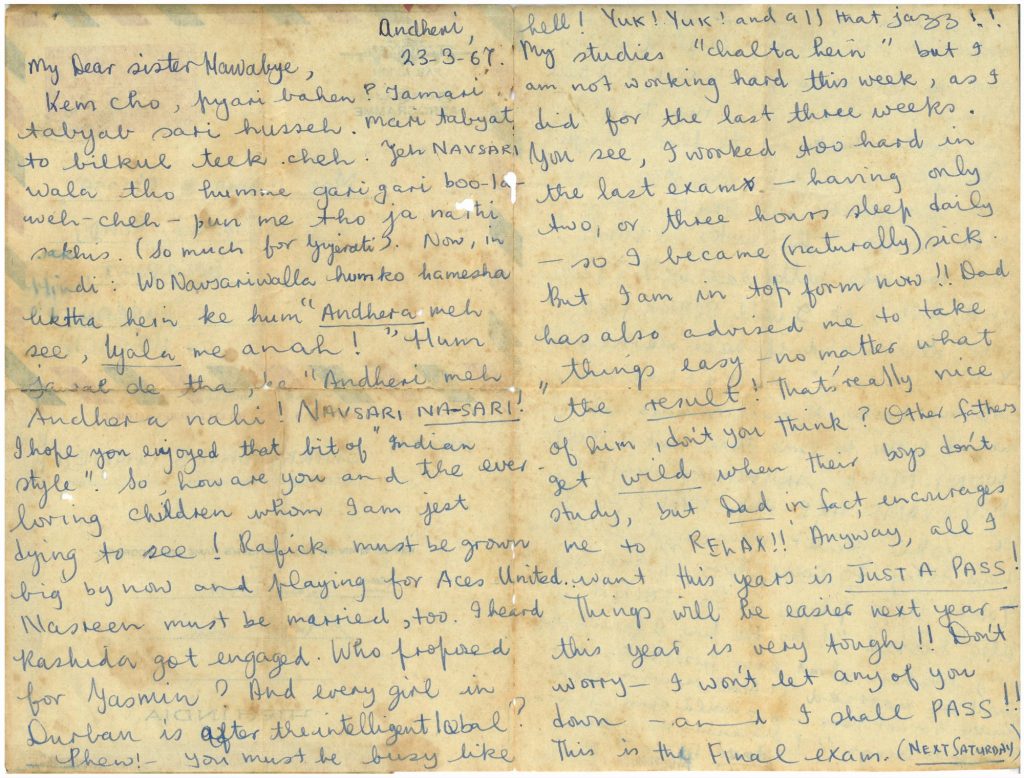 Andheri,
23-3-67.
My Dear sister Hawabye,
Kem cho, pyari bahen? Tamari
tabyab sari husseh. Mari tabyat
to bilkul teek cheh. Yeh NAVSARI
wala tho humne gari gari boo-la-
weh-cheh - pun me tho ja nathi
sakhis. (So much for Gujerati). Now, in
Hindi: Wo Navsariwalla humko hamesha
liktha hein ke hum "Andhera meh
see, Ujala me anah!" Hum
jawab de tha, "Andheri meh
Andhera nahi! NAVSARI NA-SARI!
I hope you enjoyed that bit of "Indian
style". So, how are you and the ever-
loving children whom I am jest
dying to see! Rafick must be grown
big by now and playing for Aces United.
Nasreen must be married, too. I heard
Rashida got engaged. Who proposed
for Yasmin? And every girl in
Durban is after the intelligent Iqbal?
- Phew! - You must be busy like
hell! Yuk! Yuk! and all that jazz!!
My studies "chalta hein" but I
am not working hard this week, as I
did for the last three weeks.
You see, I worked too hard in
the last exam - having only
two, or three hours sleep daily
- so I became (naturally) sick.
But I am in top form now!! Dad
has also advised me to take
"things easy - no matter what
the result"! That's really nice
of him, don't you think? Other fathers
get wild when their boys don't
study, but Dad in fact, encourages
me to RELAX!! Anyway, all I
want this years is JUST A PASS!
Things will be easier next year -
this year is very tough!! Don't
worry - I won't let any of you
down - and I shall PASS!!
This is the Final exam. (NEXT SATURDAY)